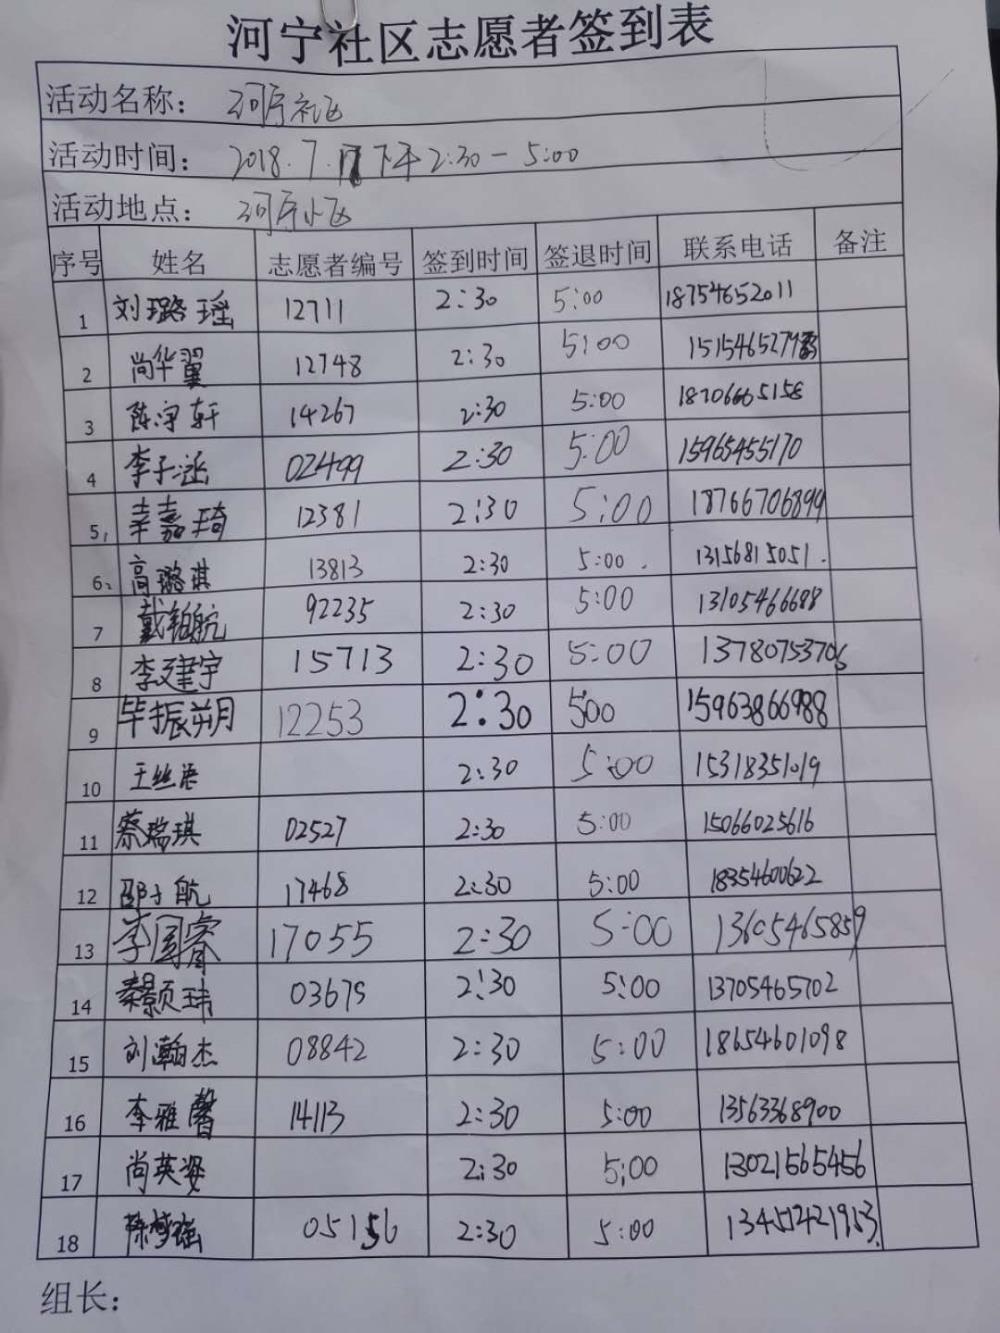 河宁社区志愿者签到表
活动名称： 河宁社区
活动时间： 2018.7.17 下午2:30-5:00
活动地点： 河宁小区
序号 姓名 志愿者编号 签到时间 签退时间 联系电话 备注
1 刘璐瑶 12711 2:30 5:00 18754652011
2 尚华翼 12748 2:30 5:00
3 陈宇轩 14267 2:30 5:00 18706665158
4 李子涵 02499 2:30 5:00 15965455170
5, 辛嘉琦 12381 2:30 5:00 18766706899
6、 高璐琪 13813 2:30 5:00 . 13156815051.
7 戴铂航 92235 2:30 5:00 13105466688
8 李建宇 15713 2:30 5:00 13780753706
9 毕振朔 12253 2:30 500 15963866988
10 王丝语 2:30 5:00 15318351019
11 蔡瑞琪 02527 2:30 5:00 15066025616
12 邵子航 17468 2:30 5:00 18354600622
13 李国睿 17055 2:30 5:00 13605465859
14 秦颢玮 03675 2:30 5:00 13705465702
15 刘瀚杰 08842 2:30 5:00 18654601098
16 李雅馨 14113 2:30 5:00 13563368900
17 尚英姿 2:30 5:00 13021565456
18 陈梦瑶 05156 2:30 5:00
组长：